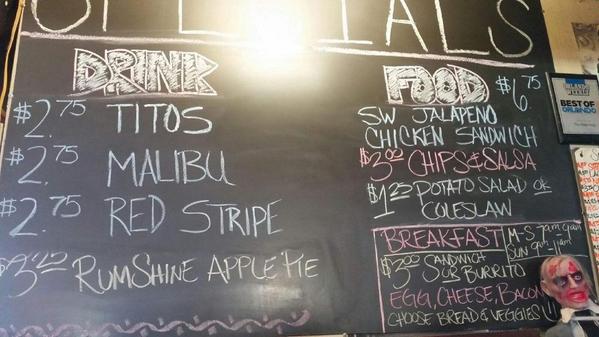 SPECIALS
DRINK
$2.75 TITOS
$2.75 MALIBU
$2.75 RED STRIPE
$3.25 RUMSHINE APPLE PIE
FOOD $6.75
SW JALAPENO
CHICKEN SANDWICH
$3.00 CHIPS & SALSA
$1.25 POTATO SALAD OR
COLESLAW
BREAKFAST
M-S 7am-11am
SUN 9am-11am
$3.00 SANDWICH
OR BURRITO
EGG, CHEESE, BACON
CHOOSE BREAD & VEGGIES!!!
BEST OF
ORLANDO